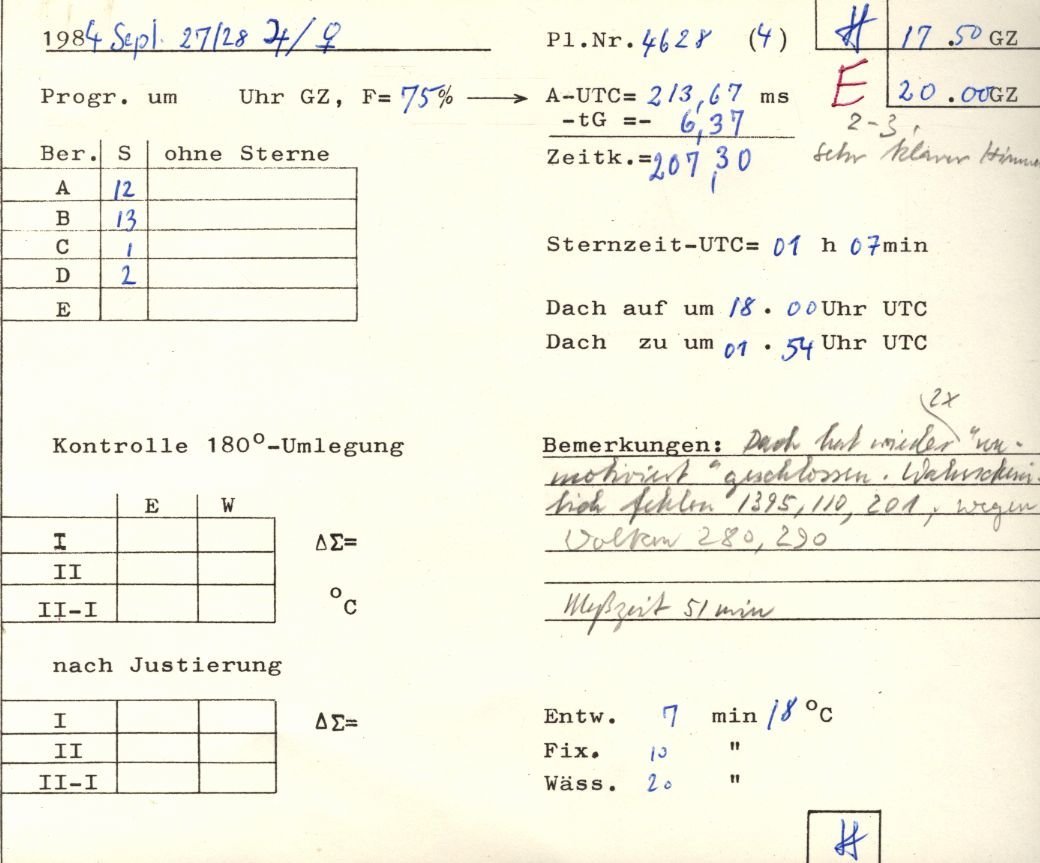 1984 Sept. 27/28 ♃/♀
Pl.Nr. 4628 (4)
H 17.50 GZ
Progr. um Uhr GZ, F= 75% → A-UTC= 213,67 ms
E 20.00 GZ
-tG =- 6,37
2-3,
Zeitk.=207,30
sehr klarer Himme
Ber. S ohne Sterne
A 12
B 13
C 1
D 2
E
Sternzeit-UTC= 01 h 07min
Dach auf um 18.00 Uhr UTC
Dach zu um 01.54 Uhr UTC
Kontrolle 180°-Umlegung
E W
I ΔΣ=
II
II-I °C
2x
Bemerkungen: Dach hat wieder "un-
motiviert" geschlossen. Wahrschein-
lich fehlen 1395, 110, 201, wegen
Wolken 280, 290
Meßzeit 51 min
nach Justierung
I ΔΣ=
II
II-I
Entw. 7 min 18 °C
Fix. 10 "
Wäss. 20 "
H